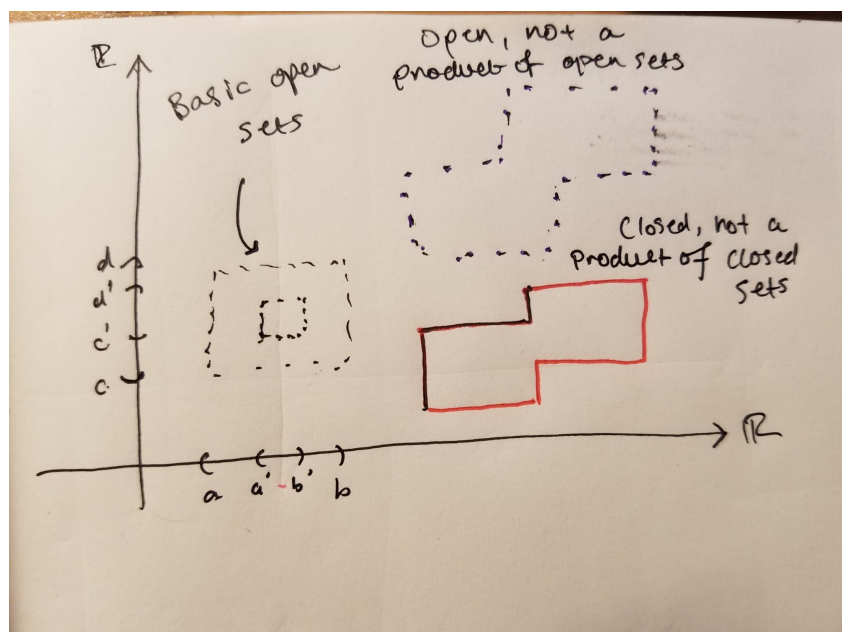 ℝ
Basic open
sets
Open, not a
product of open sets
Closed, not a
product of closed
sets
d
d'
c'
c
ℝ
a
a'
b'
b